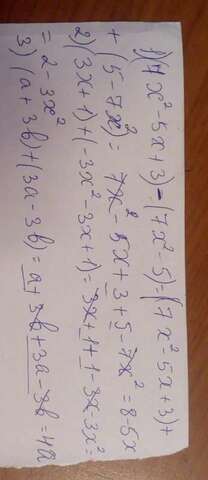 1)(7x²-5x+3)-(7x²-5)=(7x²-5x+3)+
+(5-7x²)=7x²-5x+3+5-7x²=8-5x
2)(3x+1)+(-3x²-3x+1)=3x+1+1-3x3x²=
=2-3x²
3) (a+3b)+(3a-3b)=a+3b+3a-3b=4a